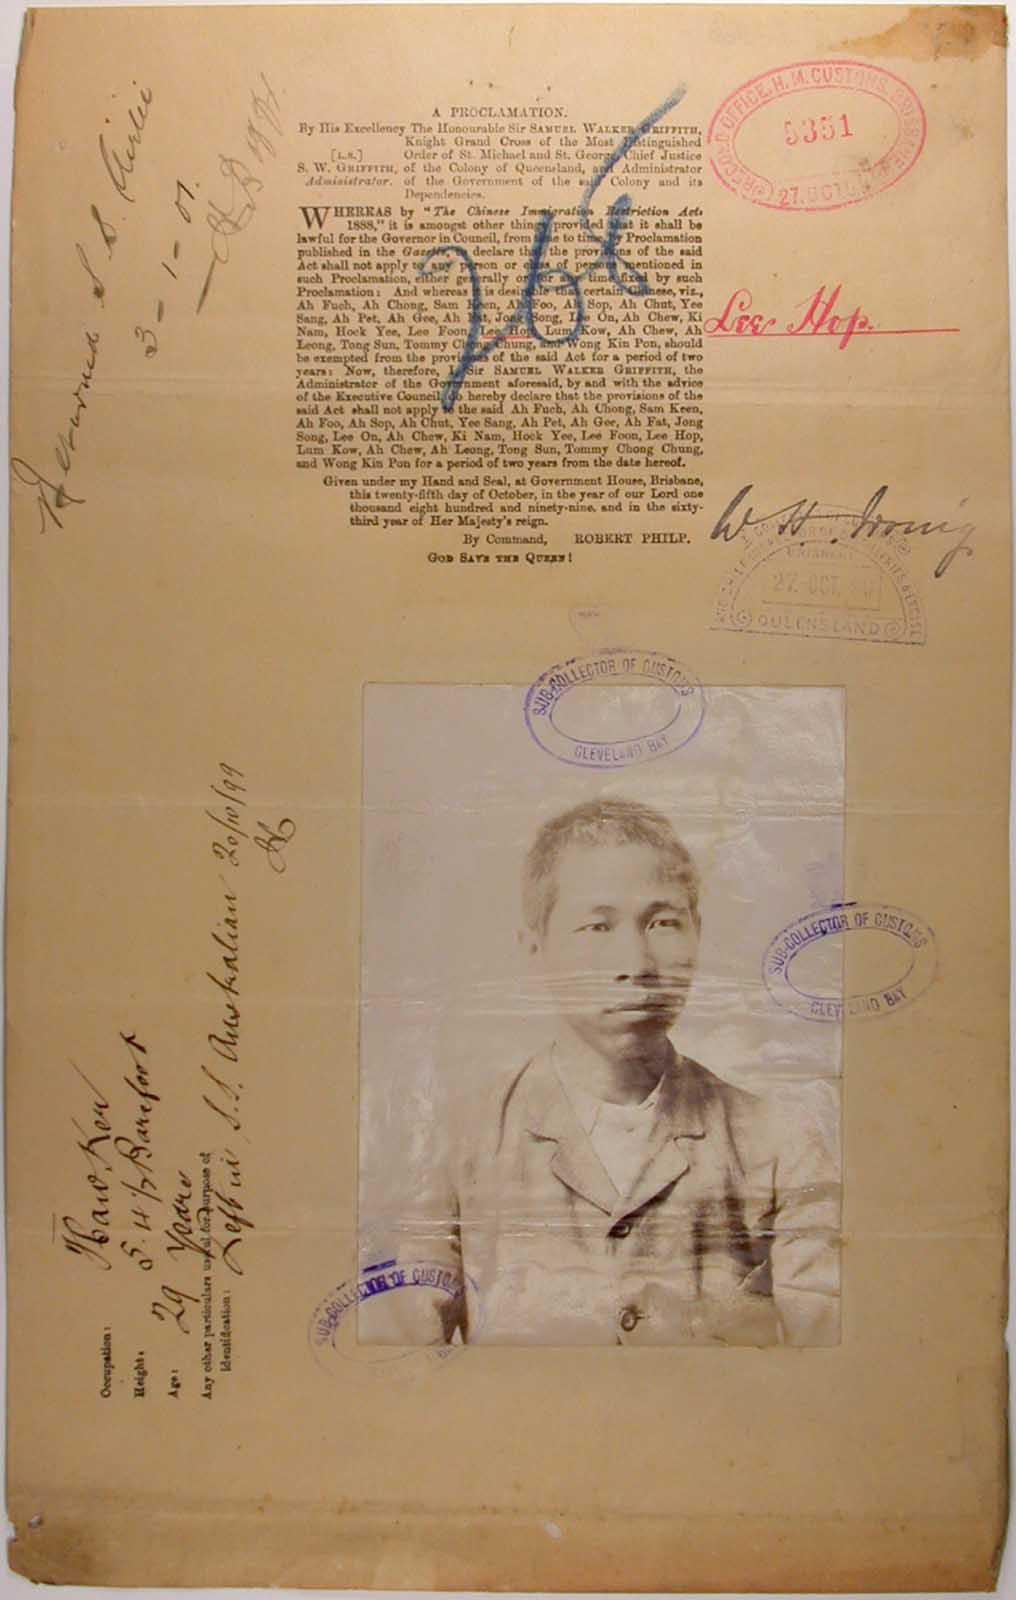 A PROCLAMATION.
By His Excellency The Honourable Sir SAMUEL WALKER GRIFFITH,
Knight Grand Cross of the Most Distinguished
[L.S.] Order of St. Michael and St. George, Chief Justice
S. W. GRIFFITH, of the Colony of Queensland, and Administrator
Administrator. of the Government of the said Colony and its
Dependencies.
WHEREAS by "The Chinese Immigration Restriction Act,
1888," it is amongst other things provided that it shall be
lawful for the Governor in Council, from time to time, by Proclamation
published in the Gazette, to declare that the provisions of the said
Act shall not apply to any person or class of persons mentioned in
such Proclamation, either generally or for any time fixed by such
Proclamation: And whereas it is desirable that certain Chinese, viz.,
Ah Fuch, Ah Chong, Sam Keen, Ah Foo, Ah Sop, Ah Chut, Yee
Sang, Ah Pet, Ah Gee, Ah Fat, Jong Song, Lee On, Ah Chew, Ki
Nam, Hock Yee, Lee Foon, Lee Hop, Lum Kow, Ah Chew, Ah
Leong, Tong Sun, Tommy Chong Chung, and Wong Kin Pon, should
be exempted from the provisions of the said Act for a period of two
years: Now, therefore, I, Sir SAMUEL WALKER GRIFFITH, the
Administrator of the Government aforesaid, by and with the advice
of the Executive Council, do hereby declare that the provisions of the
said Act shall not apply to the said Ah Fuch, Ah Chong, Sam Keen,
Ah Foo, Ah Sop, Ah Chut, Yee Sang, Ah Pet, Ah Gee, Ah Fat, Jong
Song, Lee On, Ah Chew, Ki Nam, Hock Yee, Lee Foon, Lee Hop,
Lum Kow, Ah Chew, Ah Leong, Tong Sun, Tommy Chong Chung,
and Wong Kin Pon for a period of two years from the date hereof.
Given under my Hand and Seal, at Government House, Brisbane,
this twenty-fifth day of October, in the year of our Lord one
thousand eight hundred and ninety-nine, and in the sixty-
third year of Her Majesty's reign.
By Command, ROBERT PHILP.
GOD SAVE THE QUEEN!
RECORD OFFICE, H. M. CUSTOMS, BRISBANE
5351
27. OCT.
Lee Hop.
W H Irving
BRISBANE
27. OCT.
QUEENSLAND
Returned S. S.
3-1-01.
SUB-COLLECTOR OF CUSTOMS
CLEVELAND BAY
SUB-COLLECTOR OF CUSTOMS
CLEVELAND BAY
SUB-COLLECTOR OF CUSTOMS
Occupation: Haw Ker
Height: 5. 4½ Barefoot
Age: 29 Years
Any other particulars useful for purpose of
Identification: Left in S.S. Australian 20/10/99